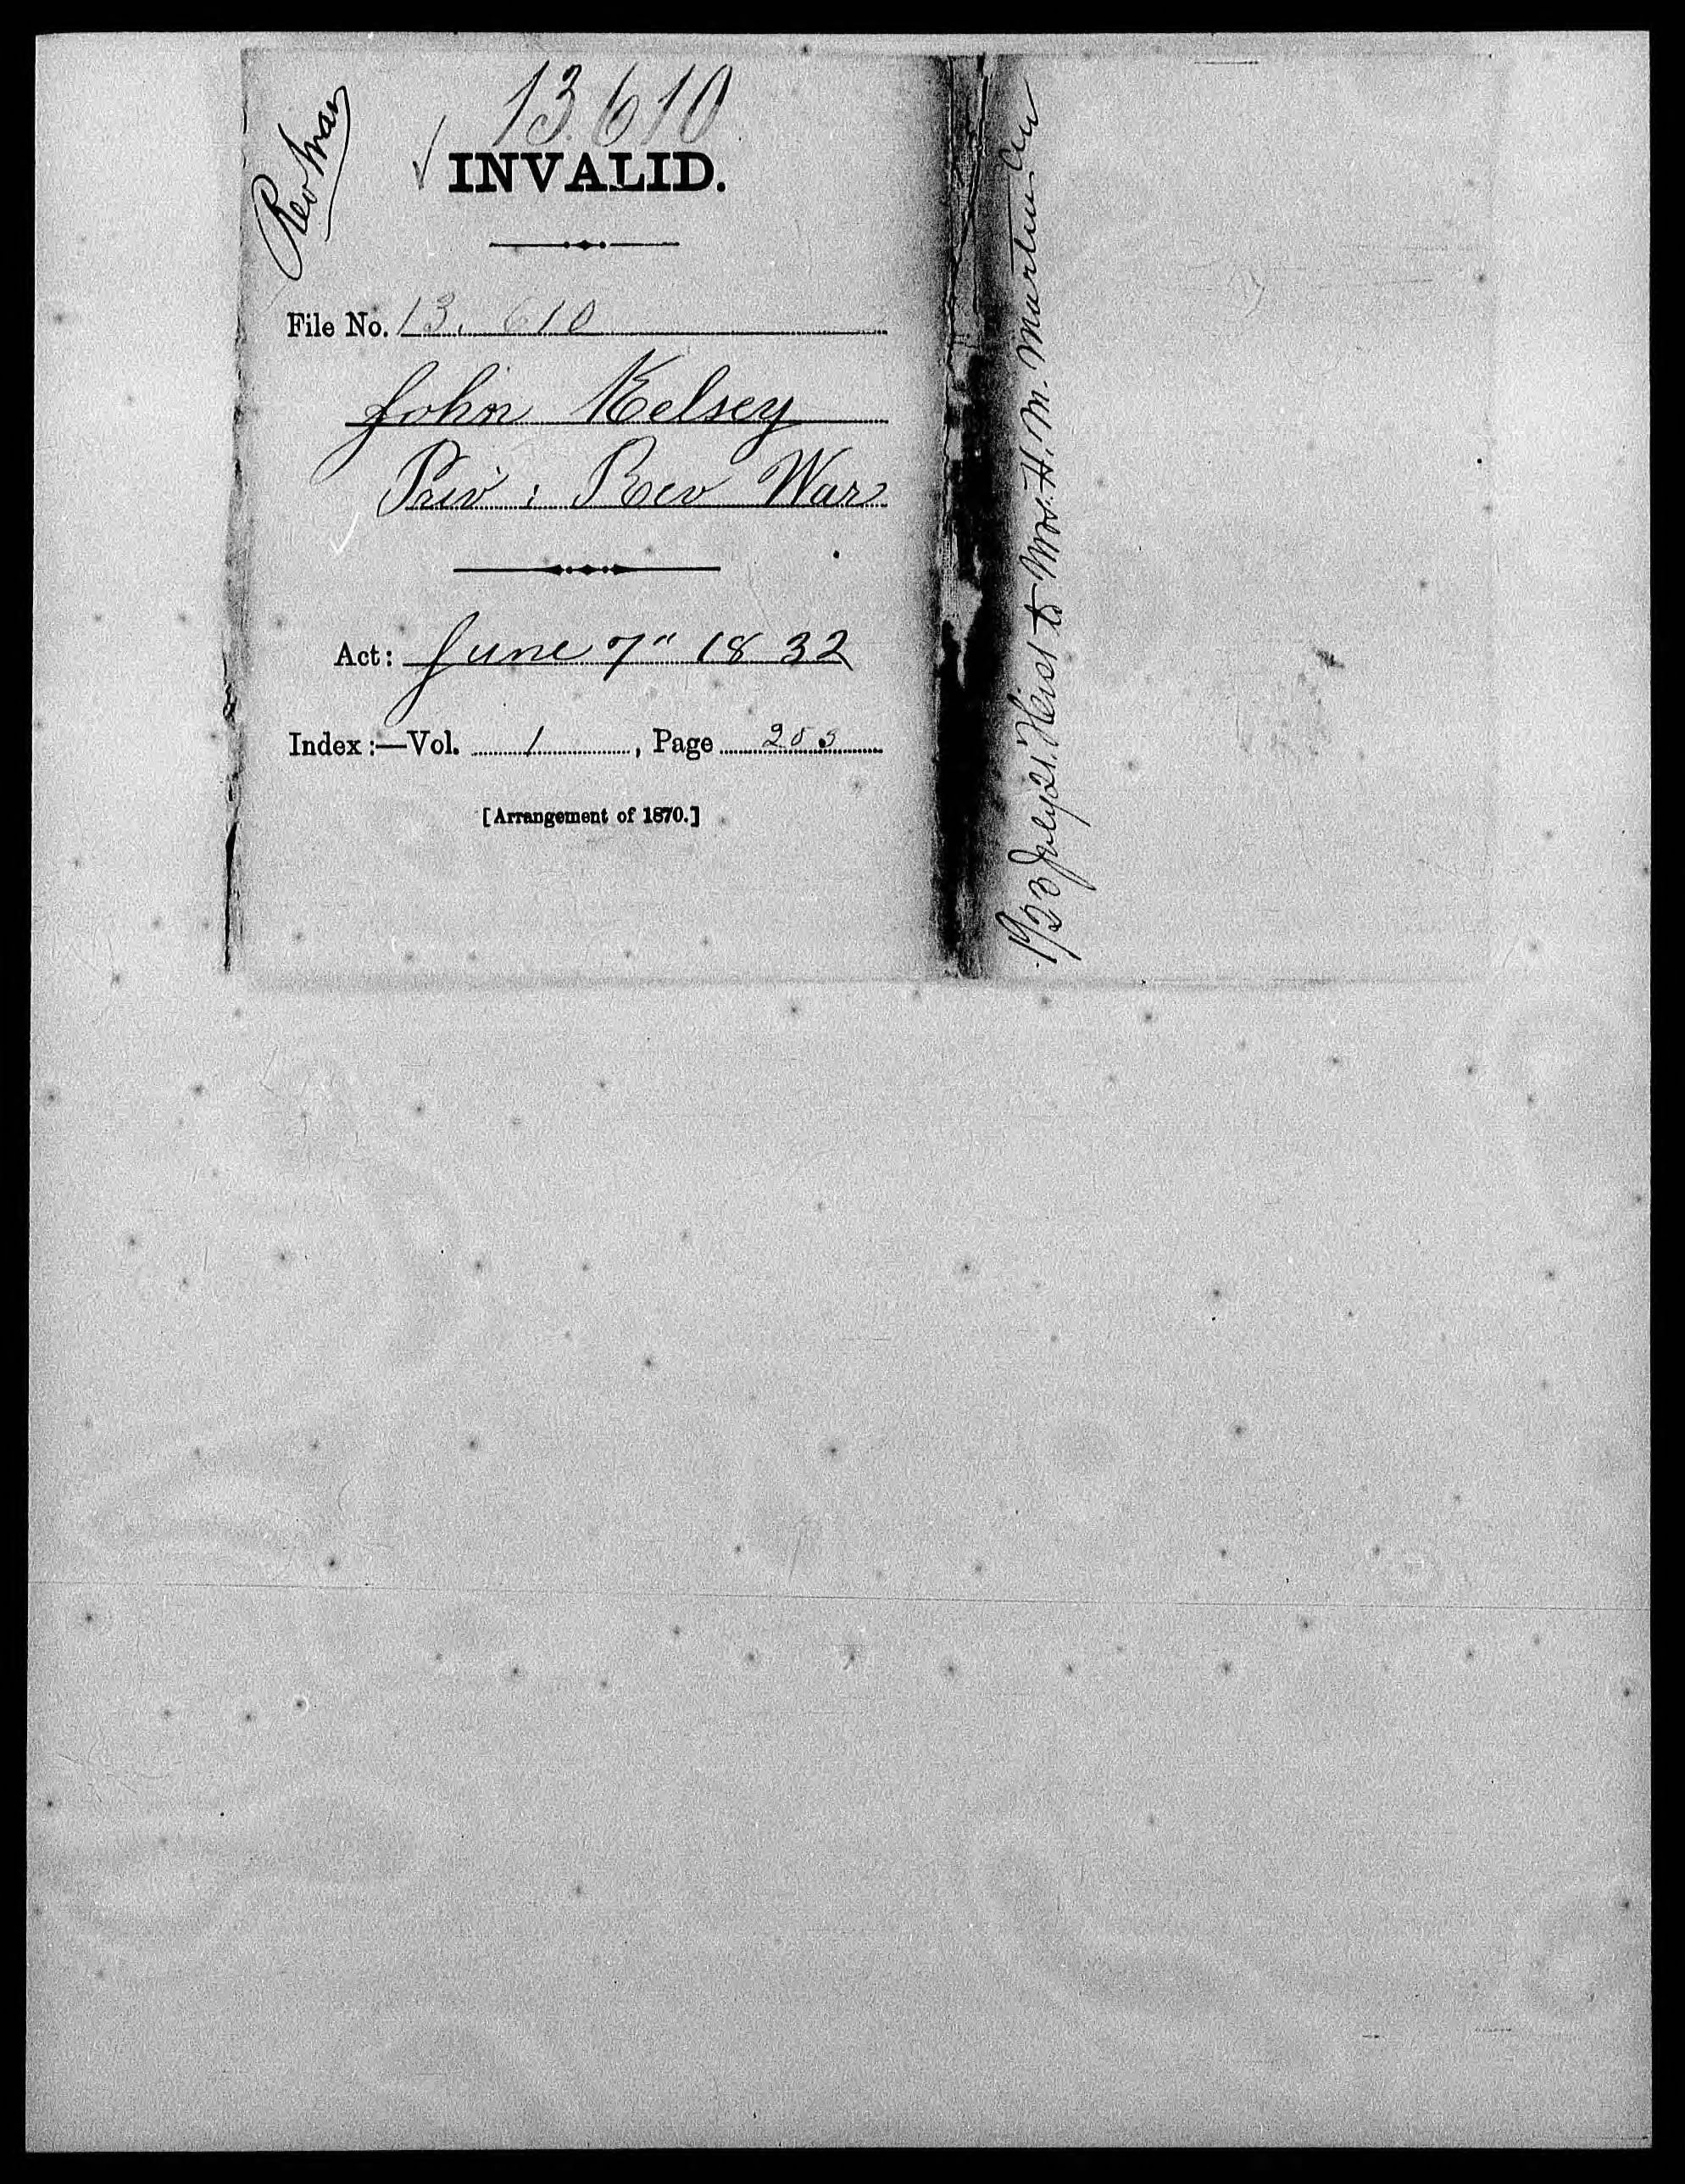 Rev War
13.610
INVALID.
File No. 13.610
John Kelsey
Priv : Rev War
Act: June 7" 1832
Index:—Vol. 1, Page 205
[Arrangement of 1870.]
1923 July 21. Hist to Mrs. H. M. Martin